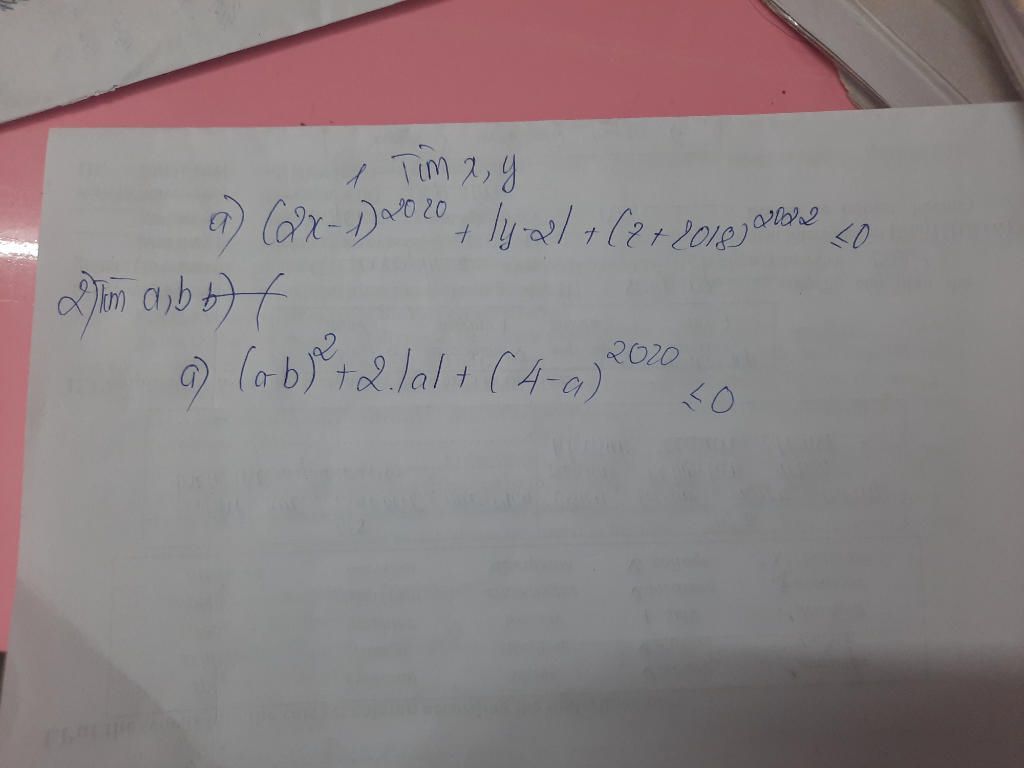 1 Tìm x, y
a) (2x-1)^2020 + |y-2| + (z+2018)^2022 ≤0
2) Tìm a, b b) (
a) (a-b)^2 + 2.|a| + (4-a)^2020 ≤0